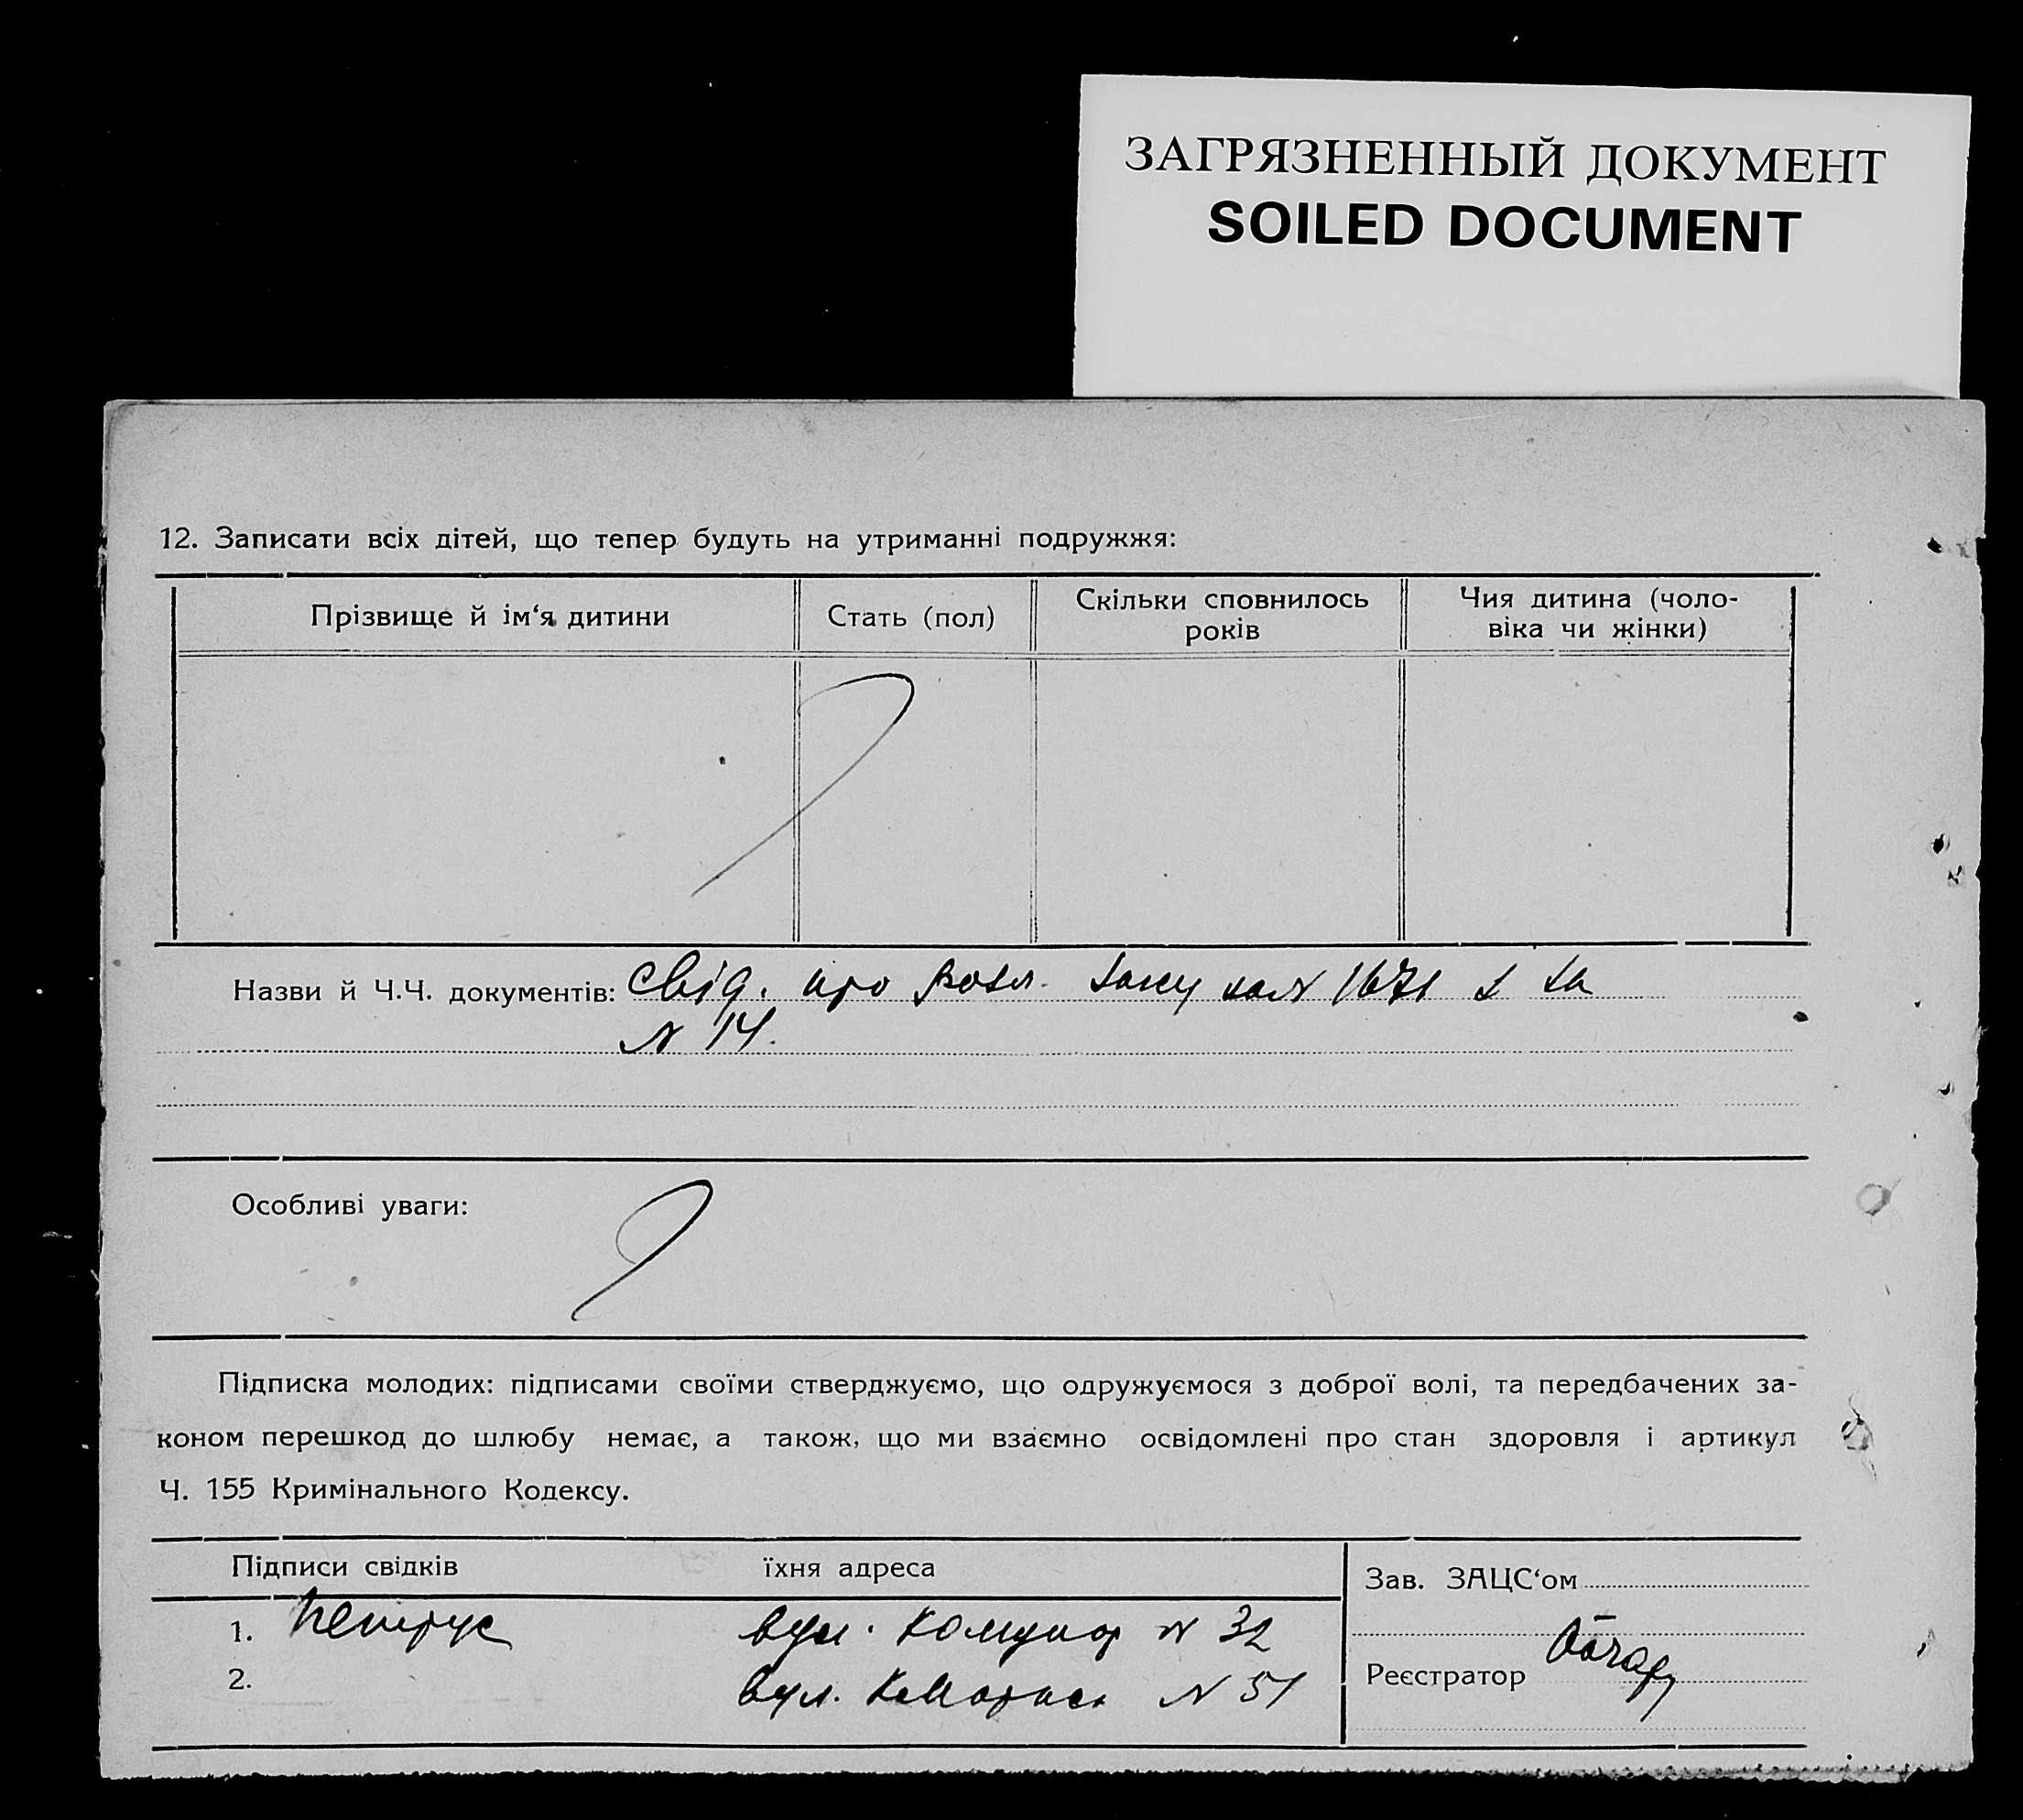 ЗАГРЯЗНЕННЫЙ ДОКУМЕНТ
SOILED DOCUMENT
12. Записати всіх дітей, що тепер будуть на утриманні подружжя:
Прізвище й ім‘я дитини
Стать (пол)
Скільки сповнилось
років
Чия дитина (чоло-
віка чи жінки)
Назви й Ч.Ч. документів: Свід. про 1671
N 14.
Особливі уваги:
Підписка молодих: підписами своїми стверджуємо, що одружуємося з доброї волі, та передбачених за-
коном перешкод до шлюбу немає, а також, що ми взаємно освідомлені про стан здоровля і артикул
Ч. 155 Кримінального Кодексу.
Підписи свідків їхня адреса
Зав. ЗАЦС‘ом
1. Петрус вул. N 32
2. вул. N 51
Реєстратор